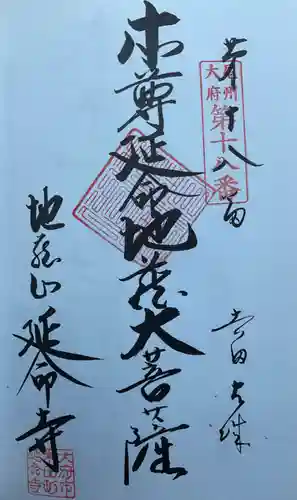 第十八番
尾州
大府
第十八番
本尊延命地蔵大菩薩
吉田
地蔵山延命寺
大府市
延命寺